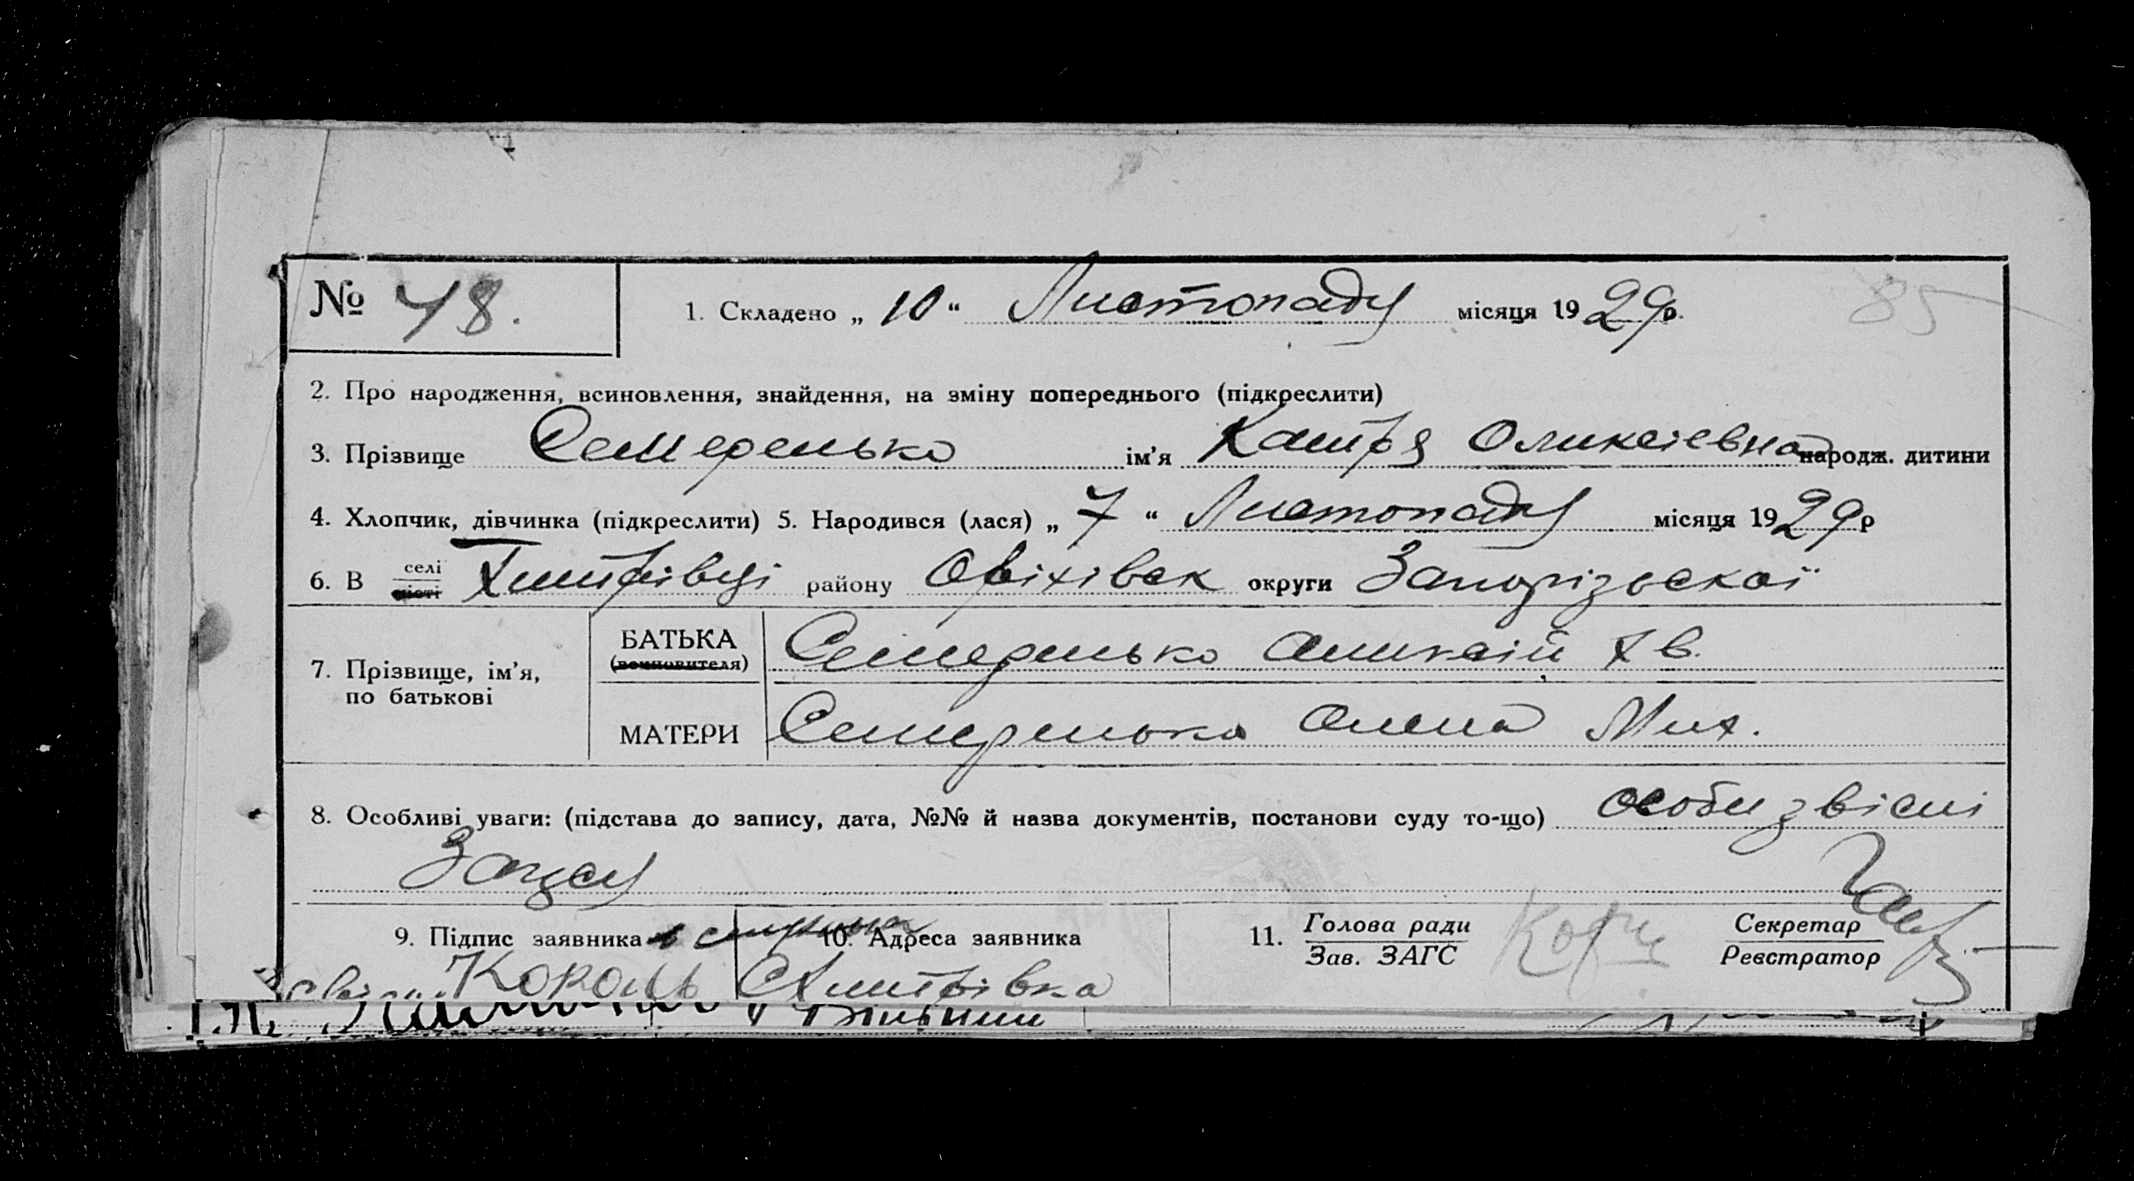 № 48.
1. Складено „10“ Листопаду місяця 1929р.
85
2. Про народження, всиновлення, знайдення, на зміну попереднього (підкреслити)
3. Прізвище Семеренько ім'я Катря Оликсіевна народж. дитини
4. Хлопчик, дівчинка (підкреслити) 5. Народився (лася) „7“ Листопаду місяця 1929р
6. В селі місті Дмитрівці району Оріхівск округи Запорізьскої
7. Прізвище, ім'я, по батькові
БАТЬКА (всиновителя) Семеренько Оликсій Хв.
МАТЕРИ Семеренько Олена Мих.
8. Особливі уваги: (підстава до запису, дата, №№ й назва документів, постанови суду то-що)
9. Підпис заявника Король
10. Адреса заявника С Дмитрівка
11. Голова ради
Зав. ЗАГС
Секретар
Реєстратор